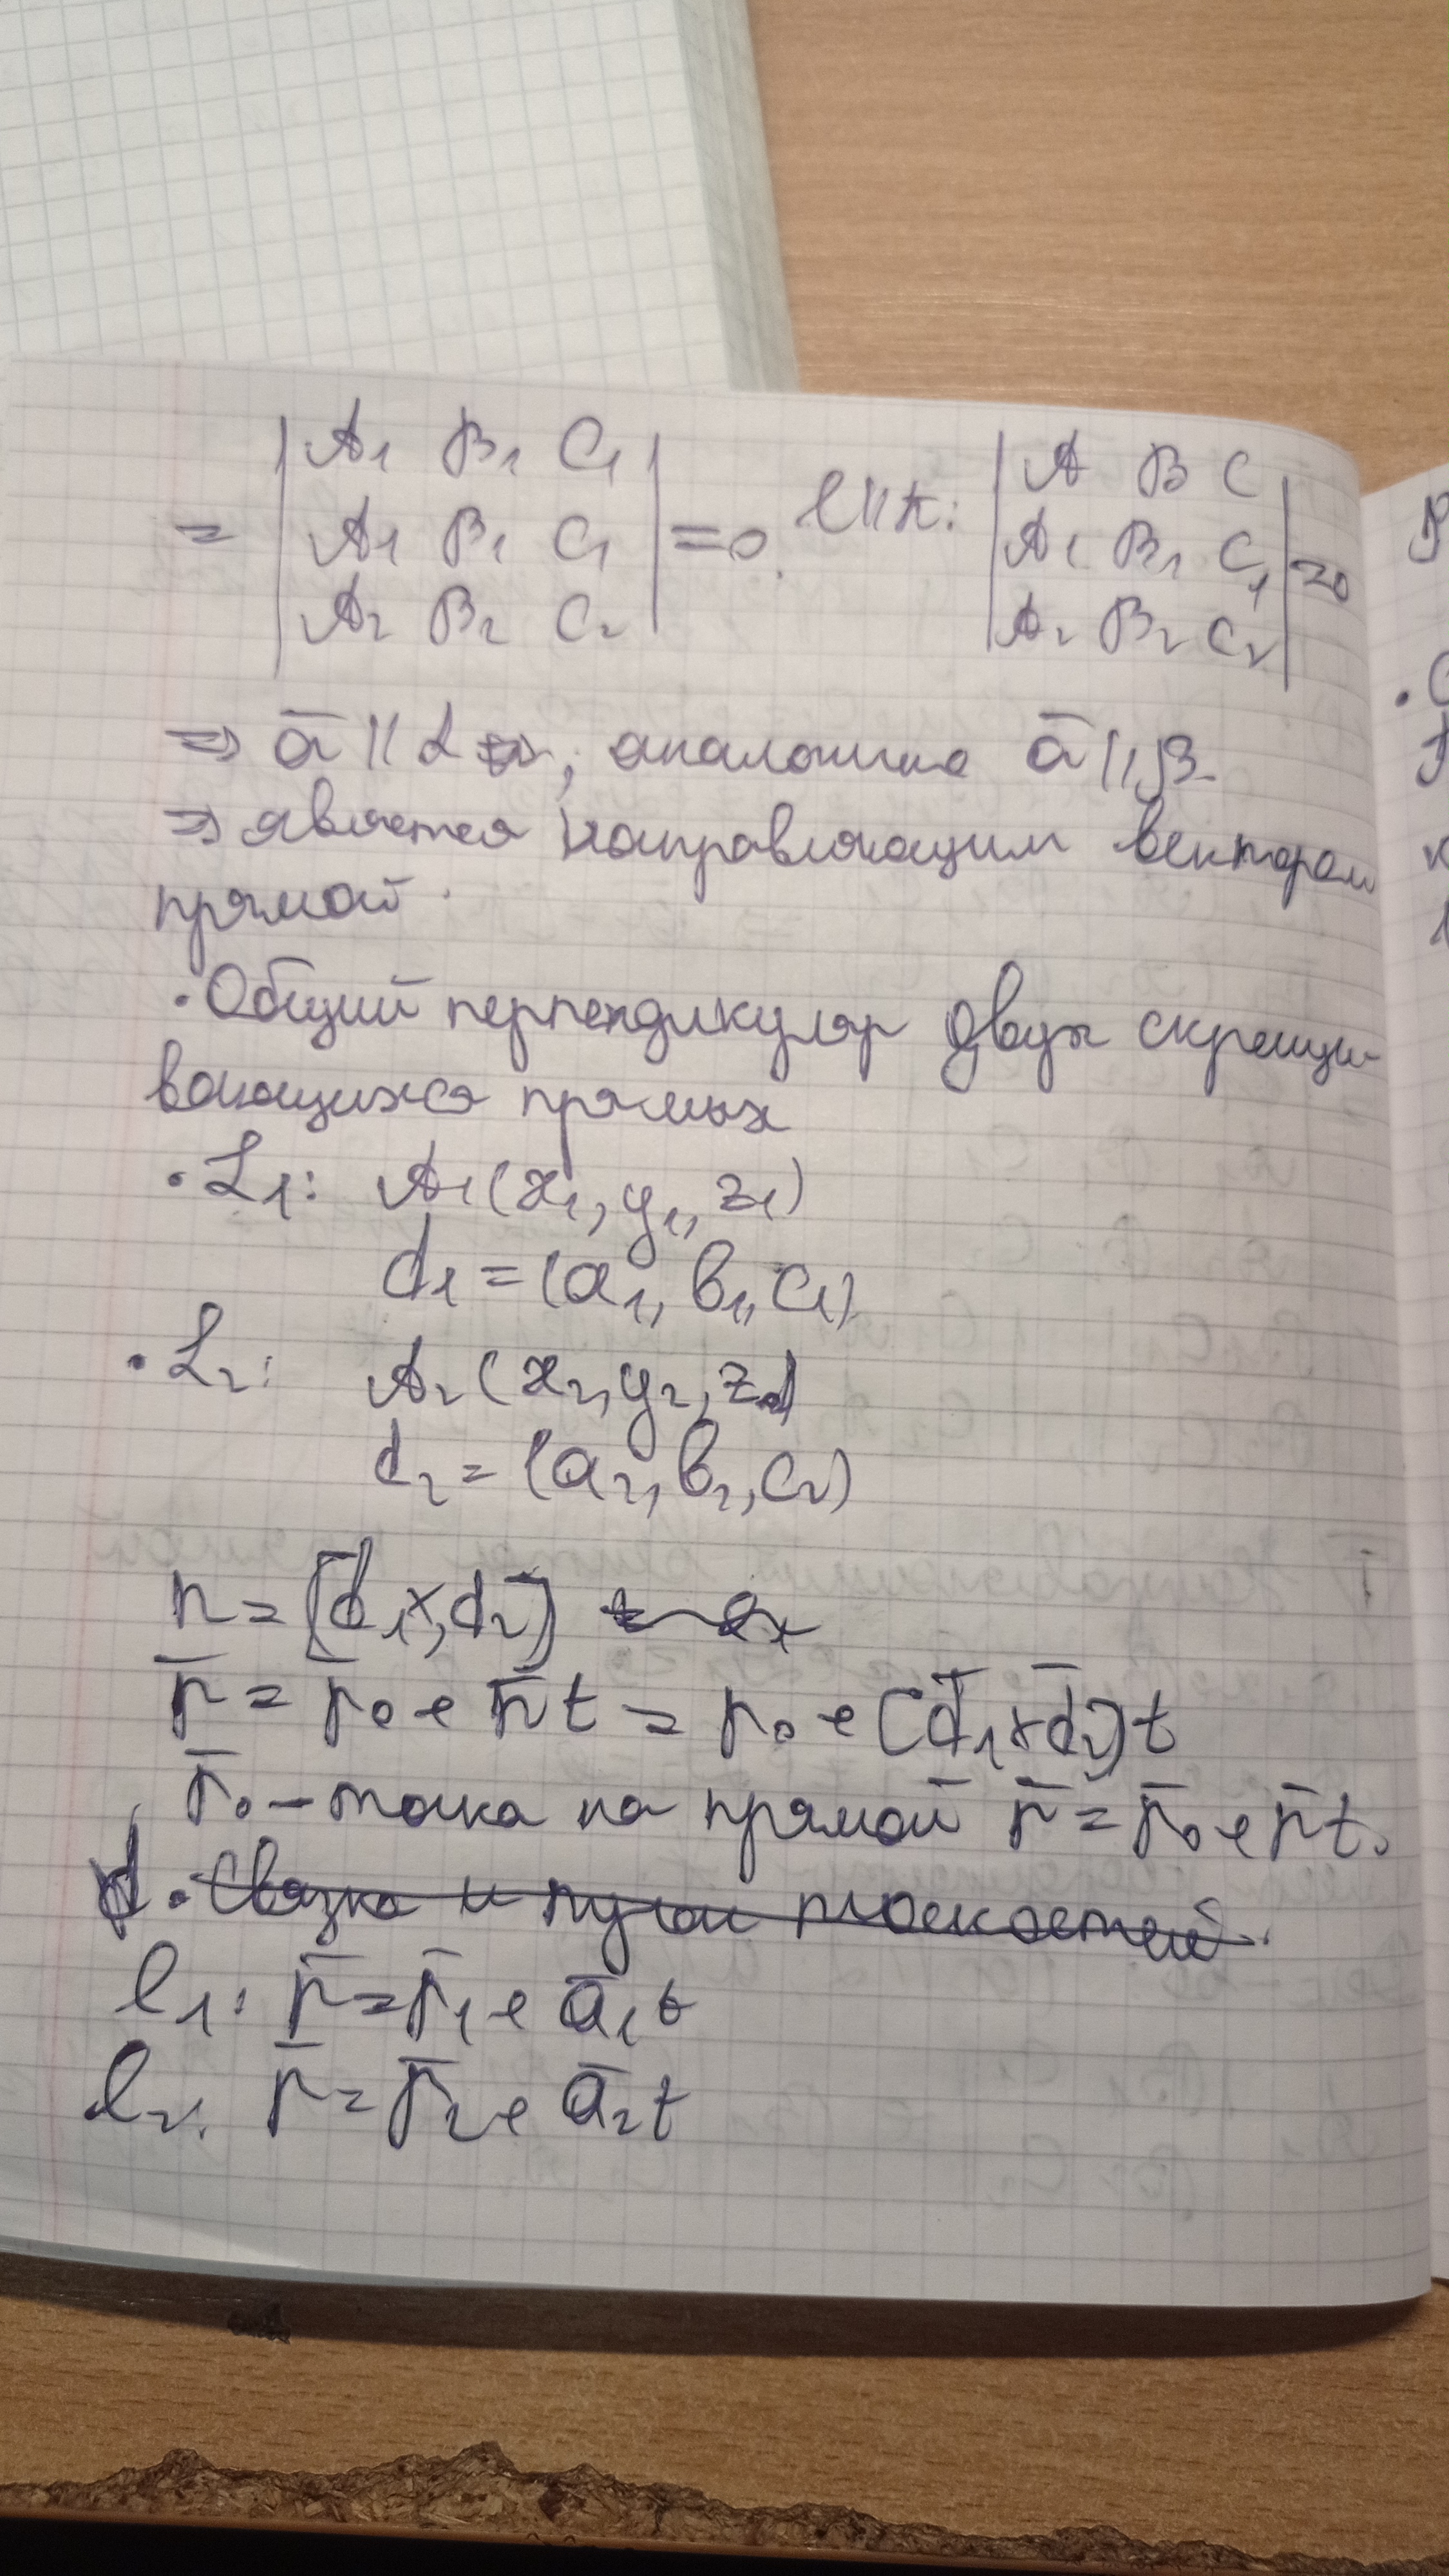 = | A₁ B₁ C₁ | = 0. l ∥ π: | A B C | = 0
| A₁ B₁ C₁ | | A₁ B₁ C₁ |
| A₂ B₂ C₂ | | A₂ B₂ C₂ |
⇒ ā ∥ α, аналогично ā ∥ β
⇒ является направляющим вектором
прямой.
• Общий перпендикуляр двух скрещи-
вающихся прямых
• L₁: A₁(x₁, y₁, z₁)
d₁ = (a₁, b₁, c₁)
• L₂: A₂(x₂, y₂, z₂)
d₂ = (a₂, b₂, c₂)
n = [d̄₁ ×, d̄₂]
r̄ = r̄₀ + n̄t = r₀ + [d̄₁ × d̄₂]t
r̄₀ – точка на прямой r̄ = r̄₀ + n̄t.
• Связка и пучок плоскостей.
l₁: r̄ = r̄₁ + ā₁t
l₂: r̄ = r̄₂ + ā₂t